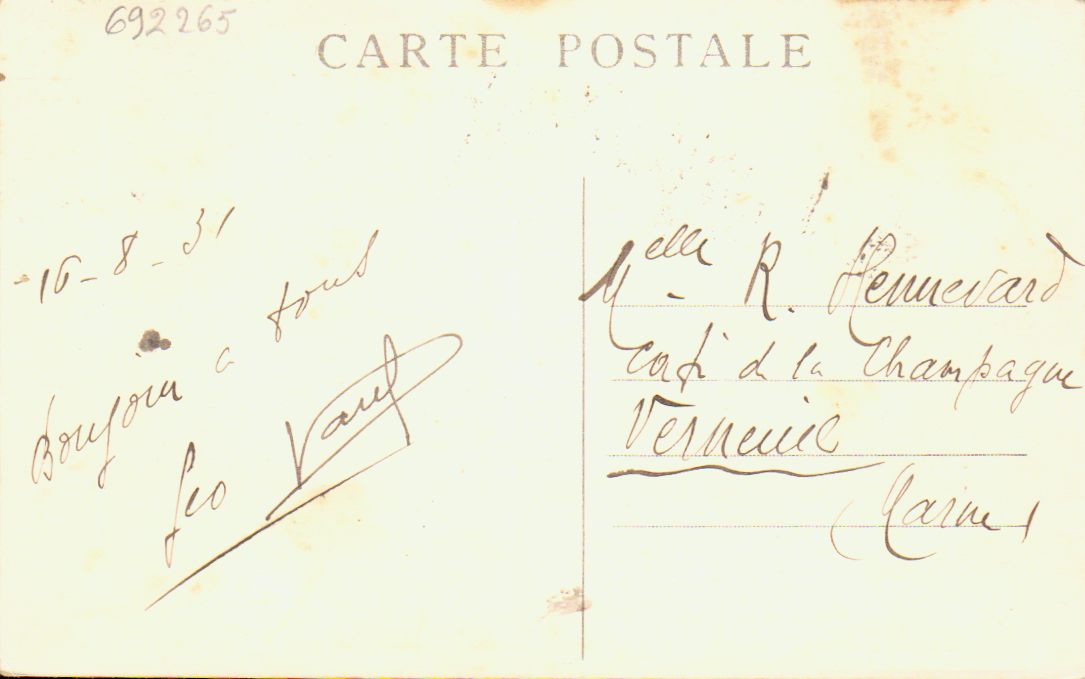 692265
CARTE POSTALE
16-8-31
Bonjour a tous
Geo Varel
Melle R. Hennevard
Café de la Champagne
Verneuil
(Marne)